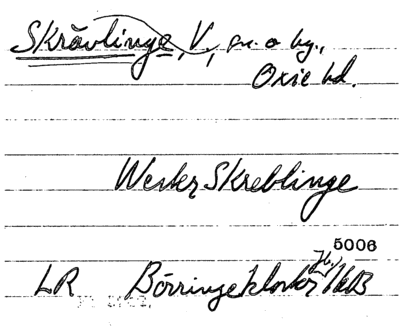 Skrävlinge, V., sn. o by.,
Oxie hd.
Wester Skreblinge
5006
LR Börringekloster Jb.